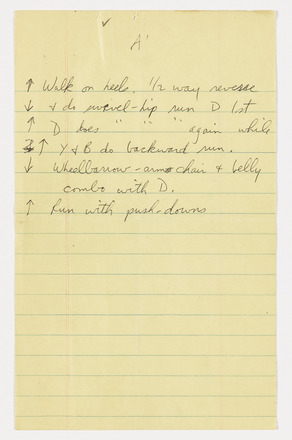 ✓
A'
↑ Walk on heels. 1/2 way reverse
↓ & do swivel-hip run D 1st
↑ D does " " " again while
↑ Y & B do backward run.
↓ Wheelbarrow - arm chair & belly
combo with D.
↑ Run with push-downs